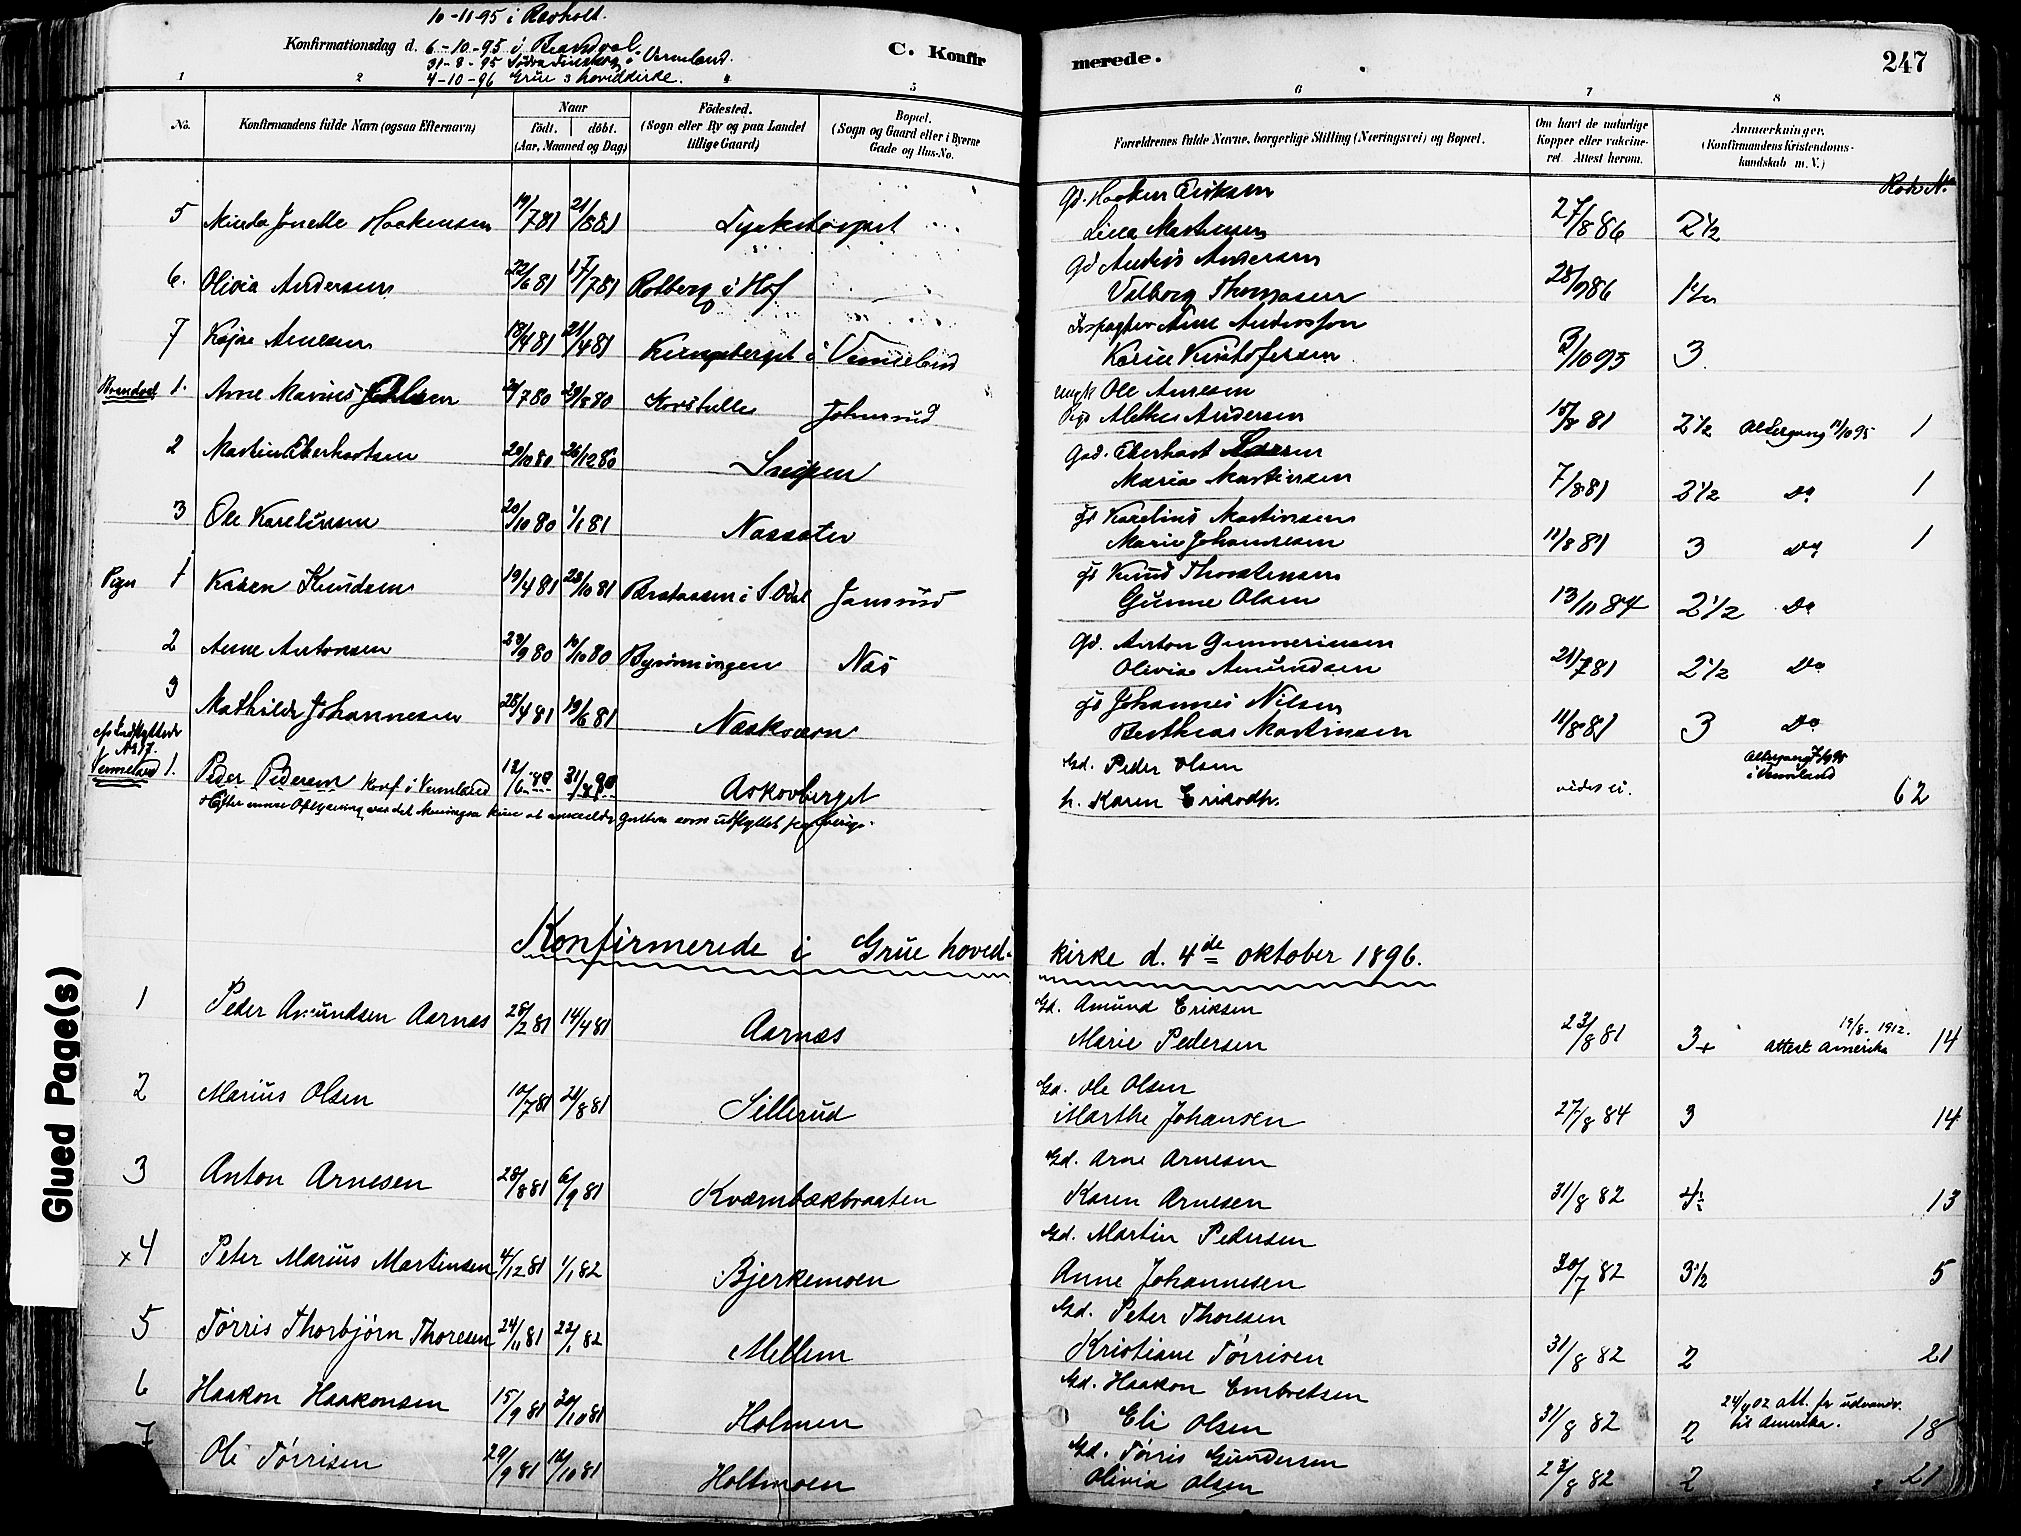 10-11-95 i
Konfirmationsdag d. 6-10-95 i Brandval.
31-8-95 Södra Finskog i Vermland.
4-10-96 Grue s hovedkirke.
C. Konfir
merede.
247
1 2 5 6 7 8
No.
Konfirmandens fulde Navn (ogsaa Efternavn)
Naar
födt. döbt.
(Aar, Maaned og Dag)
Födested.
(Sogn eller By og paa Landet
tillige Gaard)
Bopæl.
(Sogn og Gaard eller i Byerne
Gade og Hus-No.
Forældrenes fulde Navne, borgerlige Stilling (Næringsvei) og Bopæl.
Om havt de naturlige
Kopper eller vakcine-
ret. Attest herom.
Anmærkninger.
(Konfirmandens Kristendoms-
kundskab m. V.)
5 Minda Jonette Haakensen 19/7 81 21/8 81 Gd. Haaken Eriksen
Lina Martinsen 27/8 86 2 1/2
6. Olivia Andersen 22/6 81 17/7 81 Rotberg i Hof Gd Anders Andersen
Valborg Thomasen 28/9 86
7 Kajsa Arnesen 18/4 81 21/4 81 Kungsberget i Vermeland Arne Andersson
Karin Kristofersen 3/10 95 3
Brandval 1. Arne Marius Olsen 2/7 80 29/8 80 Johnsrud Ole Arnesen
Alethe Andersen 15/8 81 2 1/2 Altergang 11/10 95 1
2 Martin Eberhartsen 20/10 80 26/12 80 Snipen Gd. Eberhart Larsen
Maria Martinsen 7/8 81 2 1/2 Do 1
3 Ole Karelinsen 20/10 80 1/1 81 Næssæter gs Karelius Martinsen
Marie Johannesen 11/8 81 3 Do 1
Piger 1 Karen Knudsen 19/4 81 23/10 81 Brataasen i S. Odal Jansrud gs Knud Thorstensen
Gunne Olsen 13/11 84 2 1/2 Do
2 Anne Antonsen 23/9 80 19/10 80 Næs Gd. Anton Gunneriusen
Olivia Amundsen 21/7 81 2 1/2 Do
3 Mathilde Johannesen 28/4 81 19/6 81 Næskværn gs Johannes Nilsen
Berthea Martinsen 11/8 81 3 Do
Vermeland 1. Peder Pedersen Konf. i Vermland 12/6 80 31/7 80 Askovberget Gd. Peder Olsen
h. Karen Eriksdh. vides ei. Altergang
i Vermland 62
Konfirmerede i Grue hoved-
kirke d. 4de oktober 1896.
1 Peder Amundsen Aarnæs 28/2 81 14/4 81 Aarnæs Gd. Amund Eriksen
Marie Pedersen 23/8 81 3+ 19/8-1912.
Attest Amerika 14
2 Marius Olsen 10/7 81 21/8 81 Sillerud Gd. Ole Olsen
Marthe Johansen 27/8 84 3 14
3 Anton Arnesen 28/8 81 6/9 81 Kværnbækbraaten Gd. Arne Arnesen
Karen Arnesen 31/8 82 13
x 4 Peter Marius Martinsen 4/12 81 1/1 82 Bjerkemoen Gd. Martin Pedersen
Anne Johannesen 30/7 82 3 1/2 5
5 Tørris Thorbjørn Thoresen 24/11 81 22/1 82 Mellem Gd. Peter Thoresen
Kristiane Tørrisen 31/8 82 2 21
6 Haakon Haakonsen 15/9 81 30/10 81 Holmen Gd. Haakon Embretsen
Eli Olsen 31/8 82 2 24/9 02 att. for udvandr.
til Amerika. 18
7 Ole Tørrisen 29/9 81 16/10 81 Holtmoen Gd. Tørris Gundersen
Olivia Olsen 23/8 82 2 21
Glued Page(s)